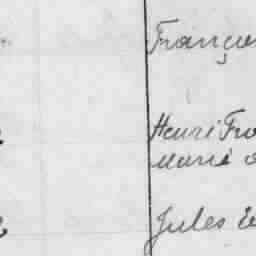 Franço
Henri Fra
Marie
Jules